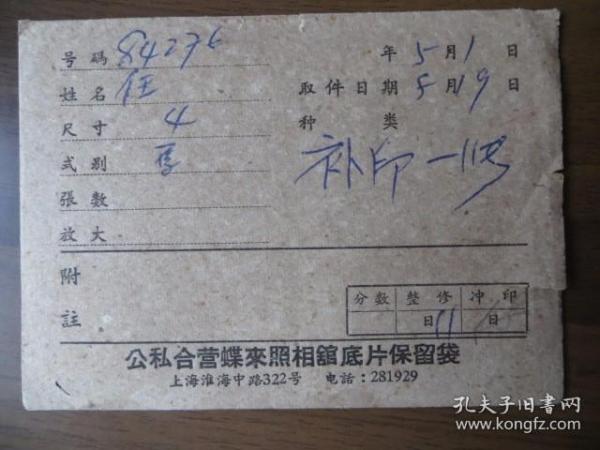 号碼 84276
年 5 月 1 日
姓名 任
取件日期 5 月 19 日
尺寸 4
种类
式别
補印一
張数
放大
附註
分数 整修 冲印
日 11 日
公私合营蝶來照相舘底片保留袋
上海淮海中路322号 电話：281929
孔夫子旧書网
www.kongfz.com